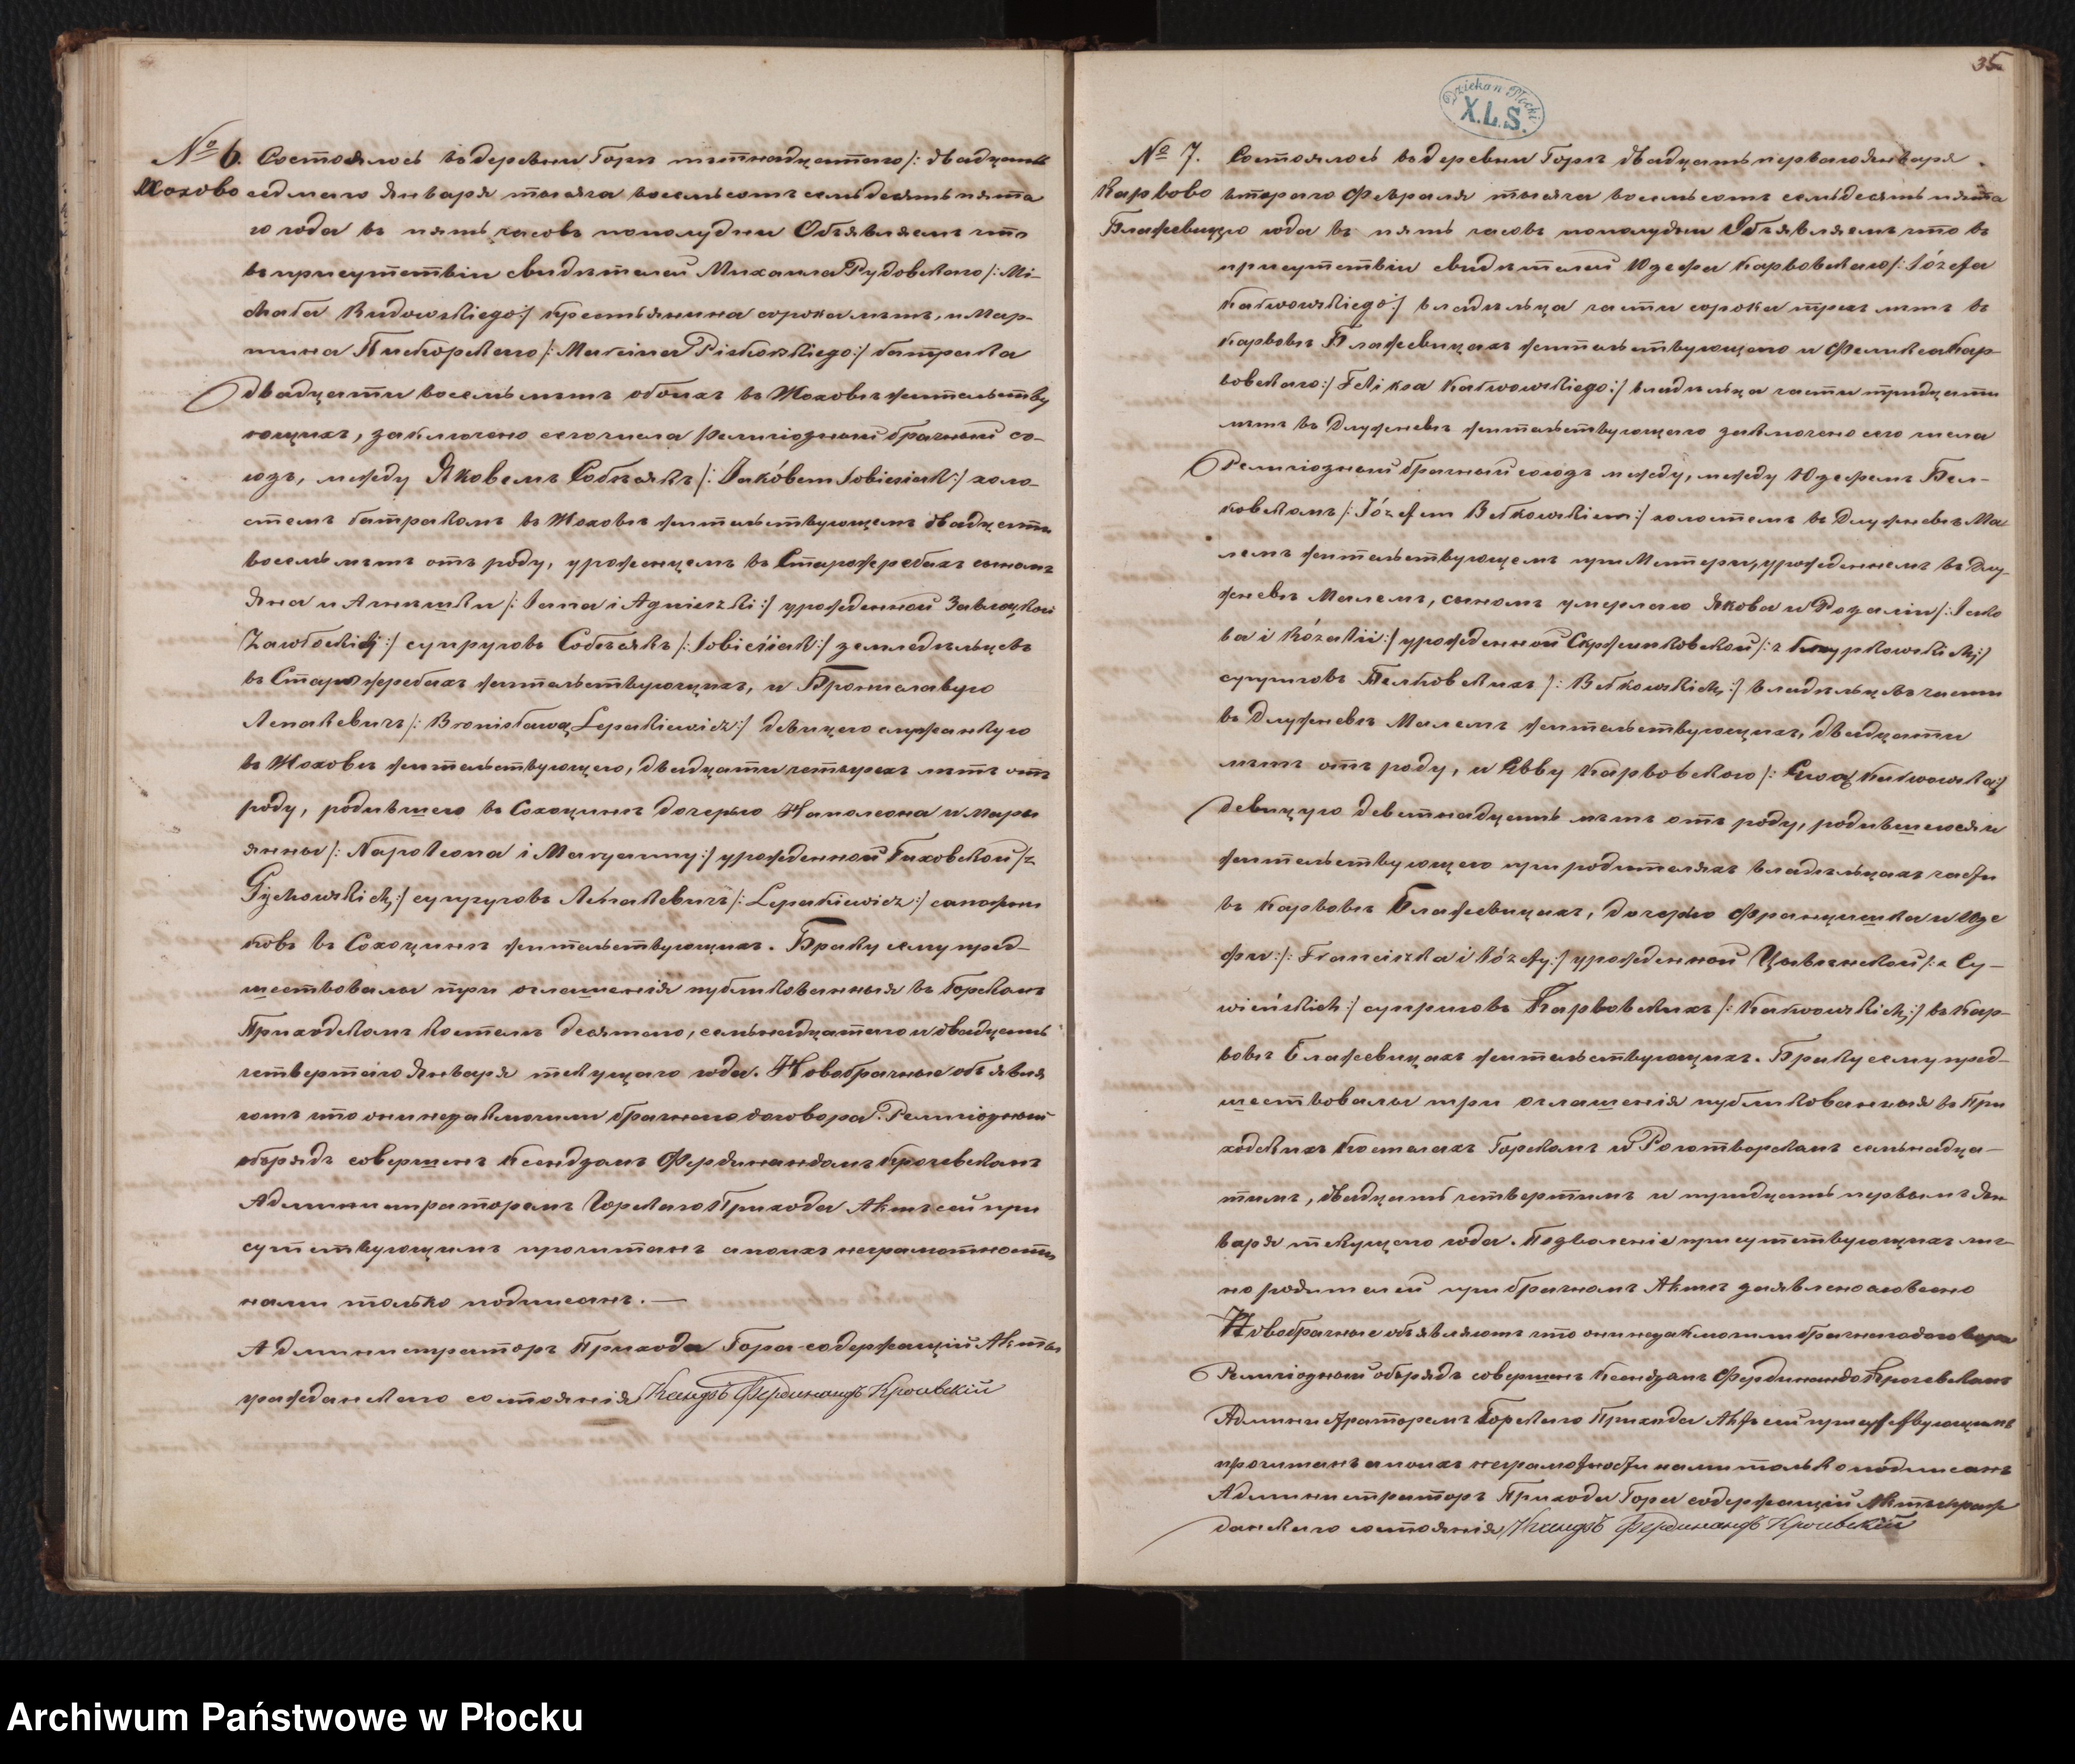 № 6. Состоялось въ деревни Горы пятнадцатаго /: двадцать
Жохово седмаго Января тысяча восемьсотъ семьдесятъ пята
го года въ пять часовъ пополудни Объявляемъ что
въ присутствіи свидѣтелей Михаила Рудовскаго /: Mi-
chała Rudowskiego :/ крестьянина сорока лѣтъ, и Мар-
цина Пискорскаго /: Marcina Piskorskiego :/ батрака
двадцати восемь лѣтъ обоихъ въ Жоховѣ жительству
ющихъ, заключено сего числа Религіозный брачный со-
юзъ, между Яковемъ Собѣсякъ /: Jakóbem Sobiesiak :/ холо-
стемъ батракомъ въ Жоховѣ жительствующемъ двадцать
восемь лѣтъ отъ роду, уроженцемъ въ Старожребахъ сыномъ
Яна и Агнѣшки /: Jana i Agnieszki :/ урожденной Завлоцкой
Zawłockich :/ супруговъ Собѣсякъ /: Sobiesiak :/ земледѣльцевъ
въ Старожребахъ жительствующихъ, и Брониславую
Лепакевичъ /: Bronisławą Lepakiewicz :/ девицею служанкую
въ Жоховѣ жительствующею, двадцати четырехъ лѣтъ отъ
роду, родившею въ Сохоцинѣ дочерью Наполеона и Марі
янны /: Napoleona i Maryanny :/ урожденной Гиховской /: z
Gychowskich :/ супруговъ Лепакевичъ /: Lepakiewicz :/ сапожни
ковъ въ Сохоцинѣ жительствующихъ. Браку сему пред-
шествовалы три оглашенія публикованныя въ Горскомъ
Приходскомъ костелѣ десятаго, семьнадцатаго и двадцать
четвертаго Января текущаго года. Новобрачные объявля
ютъ что они незаключили брачнаго договора. Религіозный
обрядъ совершенъ Ксендзомъ Фердинандомъ Крочевскимъ
Администраторемъ Горскаго Прихода Актъ сей при
сутствующимъ прочитанъ а поихъ неграмотности
нами только подписанъ. —
Администраторъ Прихода Гора содержащій Акты
гражданскаго состоянія Ксендзъ Фердинандъ Крочевскій
35
Dziekan Płocki
X.L.S.
№ 7. Состоялось въ деревни Горы двадцать перваго Января.
Карвово втораго Февраля тысяча восемьсотъ семьдесятъ пята
Блажевицкіо года въ пять часовъ пополудни Объявляемъ что въ
присутствіи свидѣтелей Юзефа Карвовскаго /: Józefa
Karwowskiego :/ владѣльца части сорока трехъ лѣтъ въ
Карвовѣ Блажевицахъ жительствующаго и Феликса Кар-
вовскаго :/ Felixa Karwowskiego :/ владѣльца части тридцати
лѣтъ въ Длужневѣ жительствующаго заключено сего числа
Религіозный брачный союзъ между, между Юзефемъ Бел-
ковскимъ /: Józefem Bełkowskiem :/ холостемъ въ Длужневѣ Ма
лемъ жительствующемъ при Матери, урожденнемъ въ Длу-
жневѣ Малемъ, сыномъ умерлаго Якова и Розаліи /: Jakó
ba i Rózalii :/ урожденной
супруговъ Белковскихъ /: Bełkowskich :/ владѣльцевъ части
въ Длужневѣ Малемъ жительствующихъ, двадцати
лѣтъ отъ роду, и Евву Карвовскою /: Ewą Karwowską :/
девицую девятнадцать лѣтъ отъ роду, родившеюся и
жительствующею при родителяхъ владѣльцахъ части
въ Карвовѣ Блажевицахъ, дочерью Францишка и Юзе
фы :/: Franciszka i Józefy :/ урожденной Цывинской /: z Cy-
wińskich :/ супруговъ Карвовскихъ /: Karwowskich :/ въ Кар-
вовѣ Блажевицахъ жительствующихъ. Браку сему пред-
шествовалы три оглашенія публикованныя въ При
ходскихъ костелахъ Горскомъ и Роготворскомъ семьнадца-
тымъ, двадцать четвертымъ и тридцать первымъ Ян
варя текущаго года. Позволеніе присутствующихъ лич-
но родителей при брачномъ Актѣ заявлено словесно
Новобрачные объявляютъ что они незаключили брачнаго договора
Религіозный обрядъ совершенъ Ксендзомъ Фердинандомъ Крочевскимъ
Администраторемъ Горскаго Прихода Актъ сей присутствующимъ
прочитанъ а поихъ неграмотности нами только подписанъ
Администраторъ Прихода Гора содержащій Акты граж
данскаго состоянія Ксендзъ Фердинандъ Крочевскій
Archiwum Państwowe w Płocku